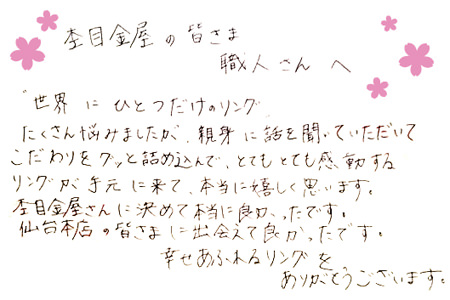 杢目金屋の皆さま
職人さんへ
"世界にひとつだけのリング
たくさん悩みましたが、親身に話を聞いていただいて
こだわりをグッと詰め込んで、とてもとても感動する
リングが手元に来て、本当に嬉しく思います。
杢目金屋さんに決めて本当に良かったです。
仙台本店の皆さまに出会えて良かったです。
幸せあふれるリングを
ありがとうございます。